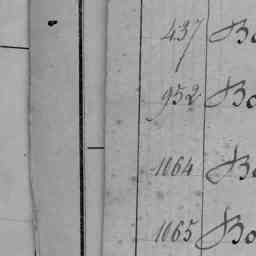 437 Bo
952 Bo
1064 Bo
1065 Bo